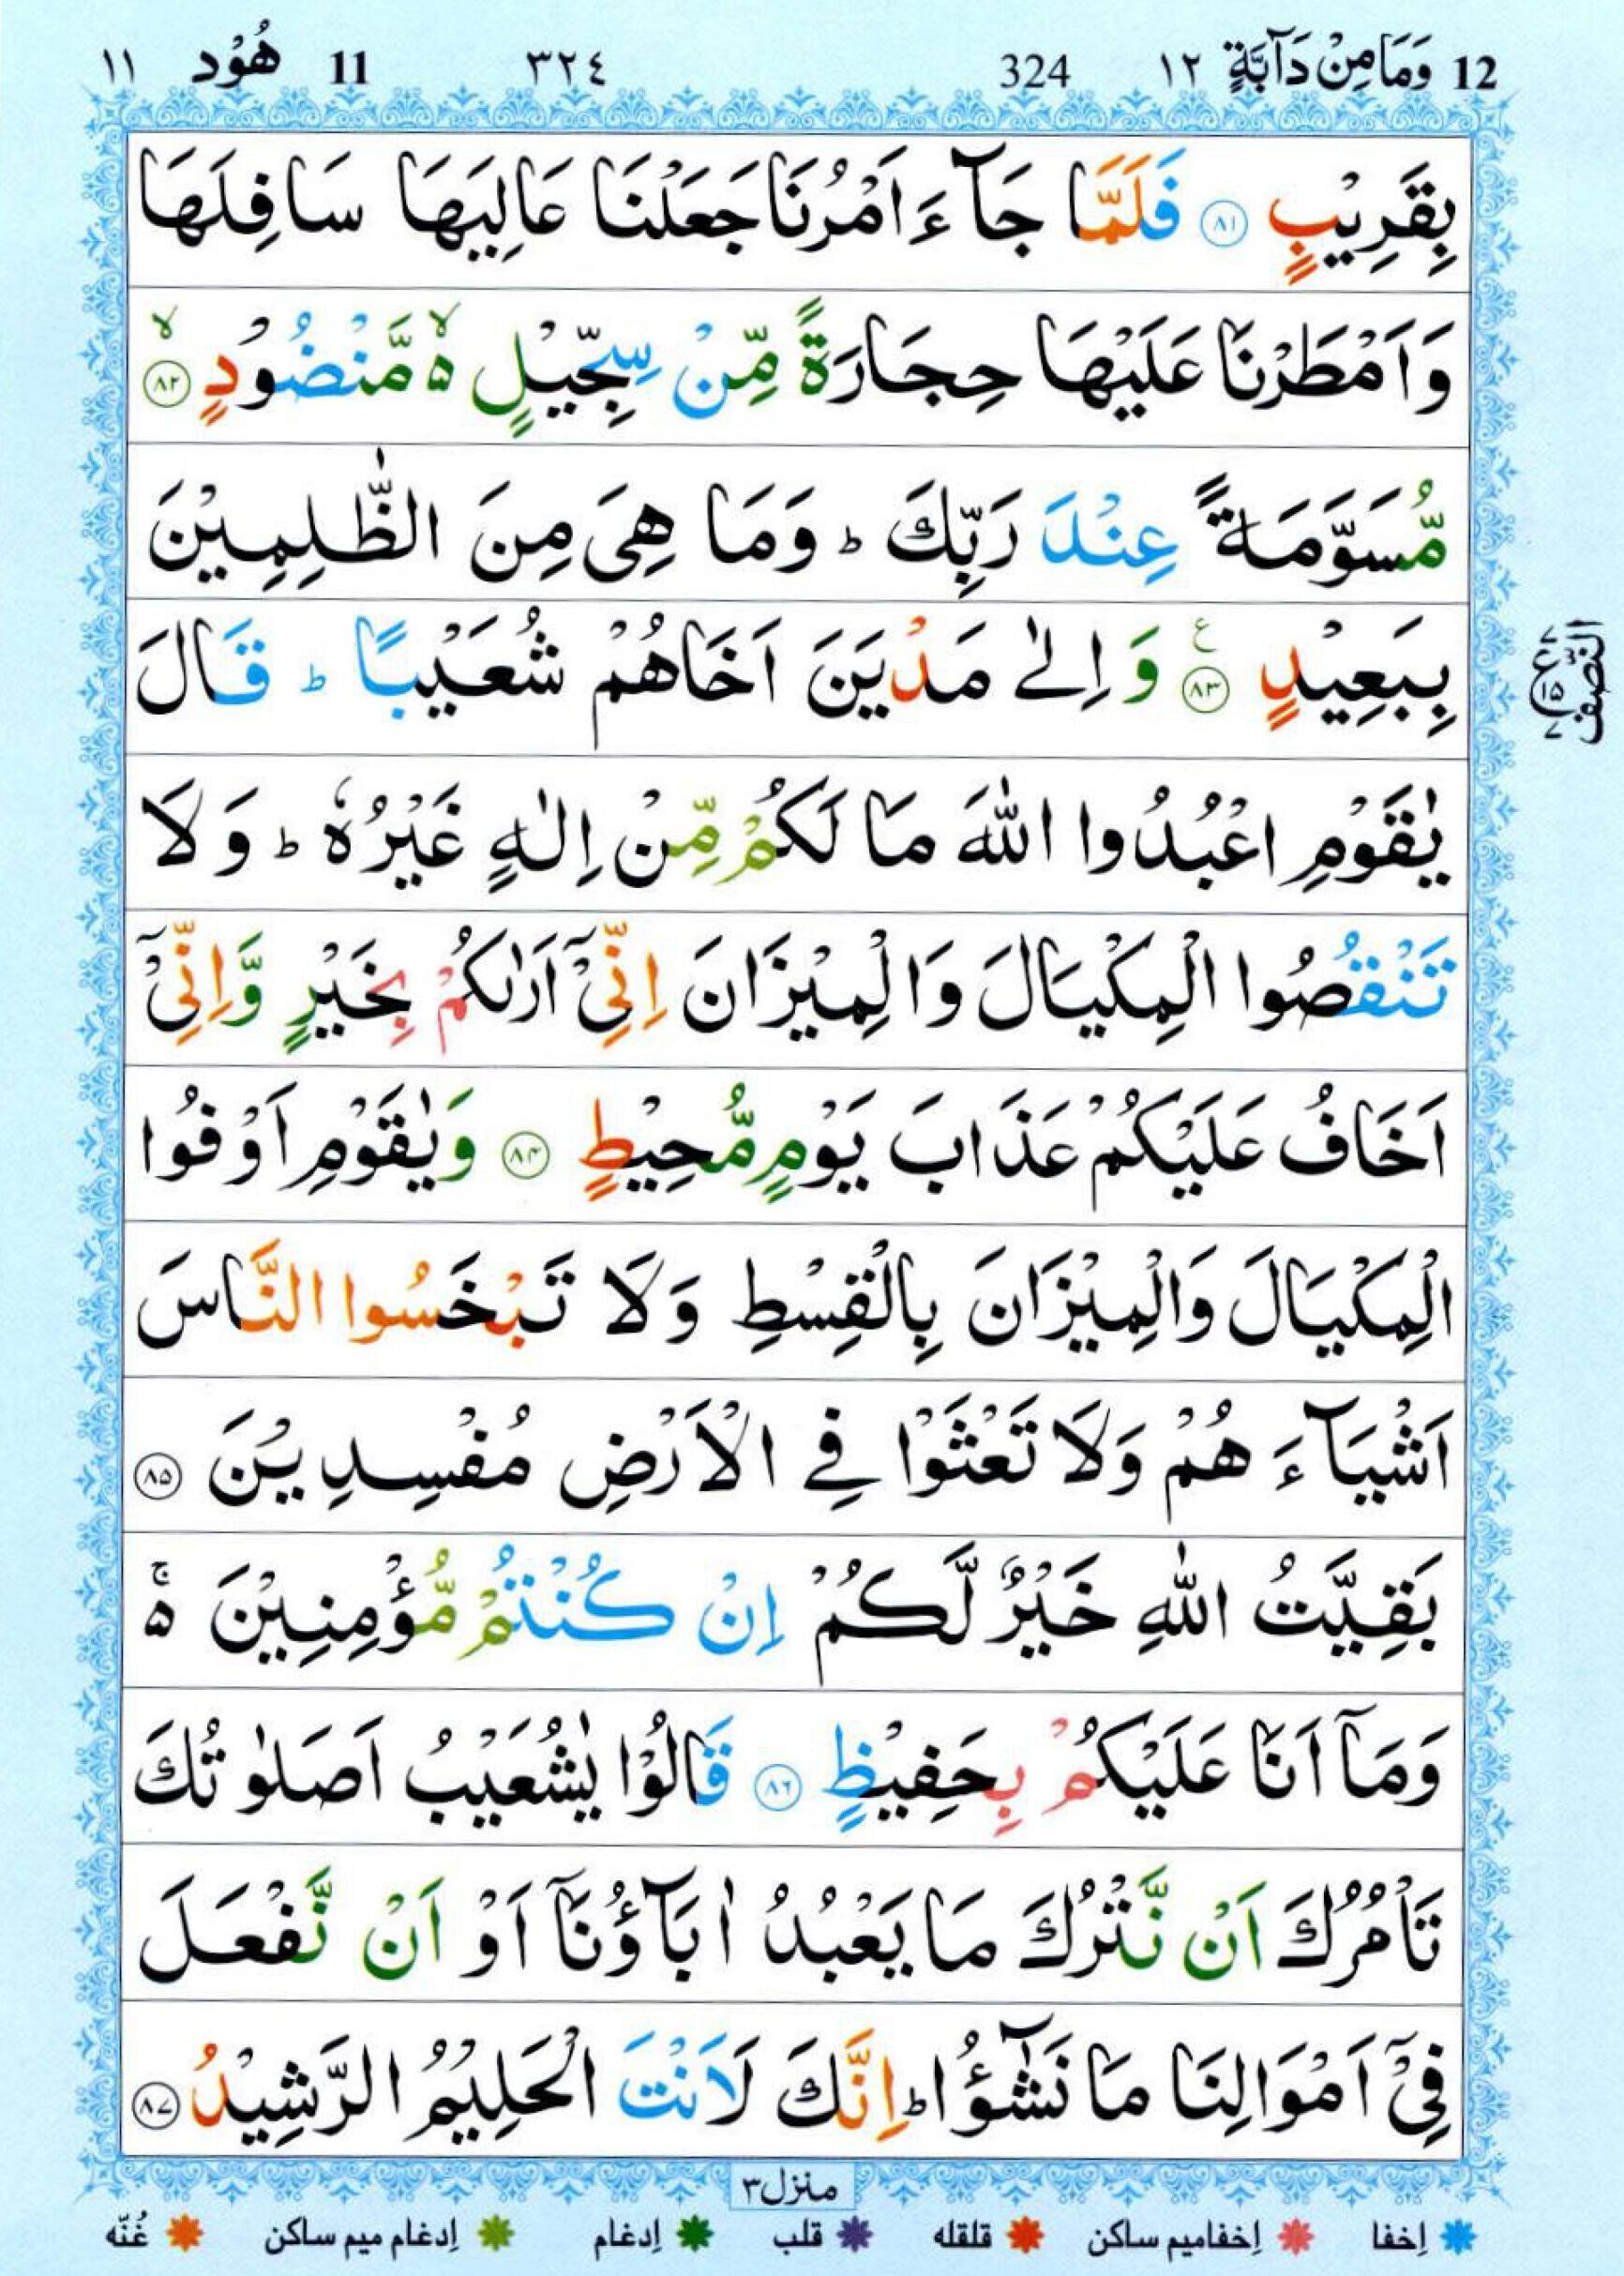 12 وَمَا مِنْ دَآبَّةٍ ١٢ 324 ٣٢٤ 11 هُوْد ١١
بِقَرِيْبٍ ﴿۸۱﴾ فَلَمَّا جَآءَ اَمْرُنَا جَعَلْنَا عَالِيَهَا سَافِلَهَا
وَاَمْطَرْنَا عَلَيْهَا حِجَارَةً مِّنْ سِجِّيْلٍ ۵ۙ مَّنْضُوْدٍ ﴿۸۲﴾ۙ
مُّسَوَّمَةً عِنْدَ رَبِّكَ ؕ وَمَا هِىَ مِنَ الظّٰلِمِيْنَ
بِبَعِيْدٍ ﴿۸۳﴾ع وَ اِلٰى مَدْيَنَ اَخَاهُمْ شُعَيْبًا ؕ قَالَ
النِّصْف
ع ١٥ ٧ ٧
يٰقَوْمِ اعْبُدُوا اللّٰهَ مَا لَكُمْ مِّنْ اِلٰهٍ غَيْرُهٗ ؕ وَلَا
تَنْقُصُوا الْمِكْيَالَ وَالْمِيْزَانَ اِنِّىْۤ اَرٰىكُمْ بِخَيْرٍ وَّاِنِّىْۤ
اَخَافُ عَلَيْكُمْ عَذَابَ يَوْمٍ مُّحِيْطٍ ﴿۸۴﴾ وَيٰقَوْمِ اَوْفُوا
الْمِكْيَالَ وَالْمِيْزَانَ بِالْقِسْطِ وَلَا تَبْخَسُوا النَّاسَ
اَشْيَآءَ هُمْ وَلَا تَعْثَوْا فِى الْاَرْضِ مُفْسِدِيْنَ ﴿۸۵﴾
بَقِيَّتُ اللّٰهِ خَيْرٌ لَّكُمْ اِنْ كُنْتُمْ مُّؤْمِنِيْنَ ۵ۚ
وَمَاۤ اَنَا عَلَيْكُمْ بِحَفِيْظٍ ﴿۸۶﴾ قَالُوْا يٰشُعَيْبُ اَصَلٰوتُكَ
تَاْمُرُكَ اَنْ نَّتْرُكَ مَا يَعْبُدُ اٰبَآؤُنَاۤ اَوْ اَنْ نَّفْعَلَ
فِىْۤ اَمْوَالِنَا مَا نَشٰٓؤُا ؕ اِنَّكَ لَاَنْتَ الْحَلِيْمُ الرَّشِيْدُ ﴿۸۷﴾
منزل۳
اِخفا اِخفامیم ساکن قلقله قلب اِدغام اِدغام میم ساکن غُنّه